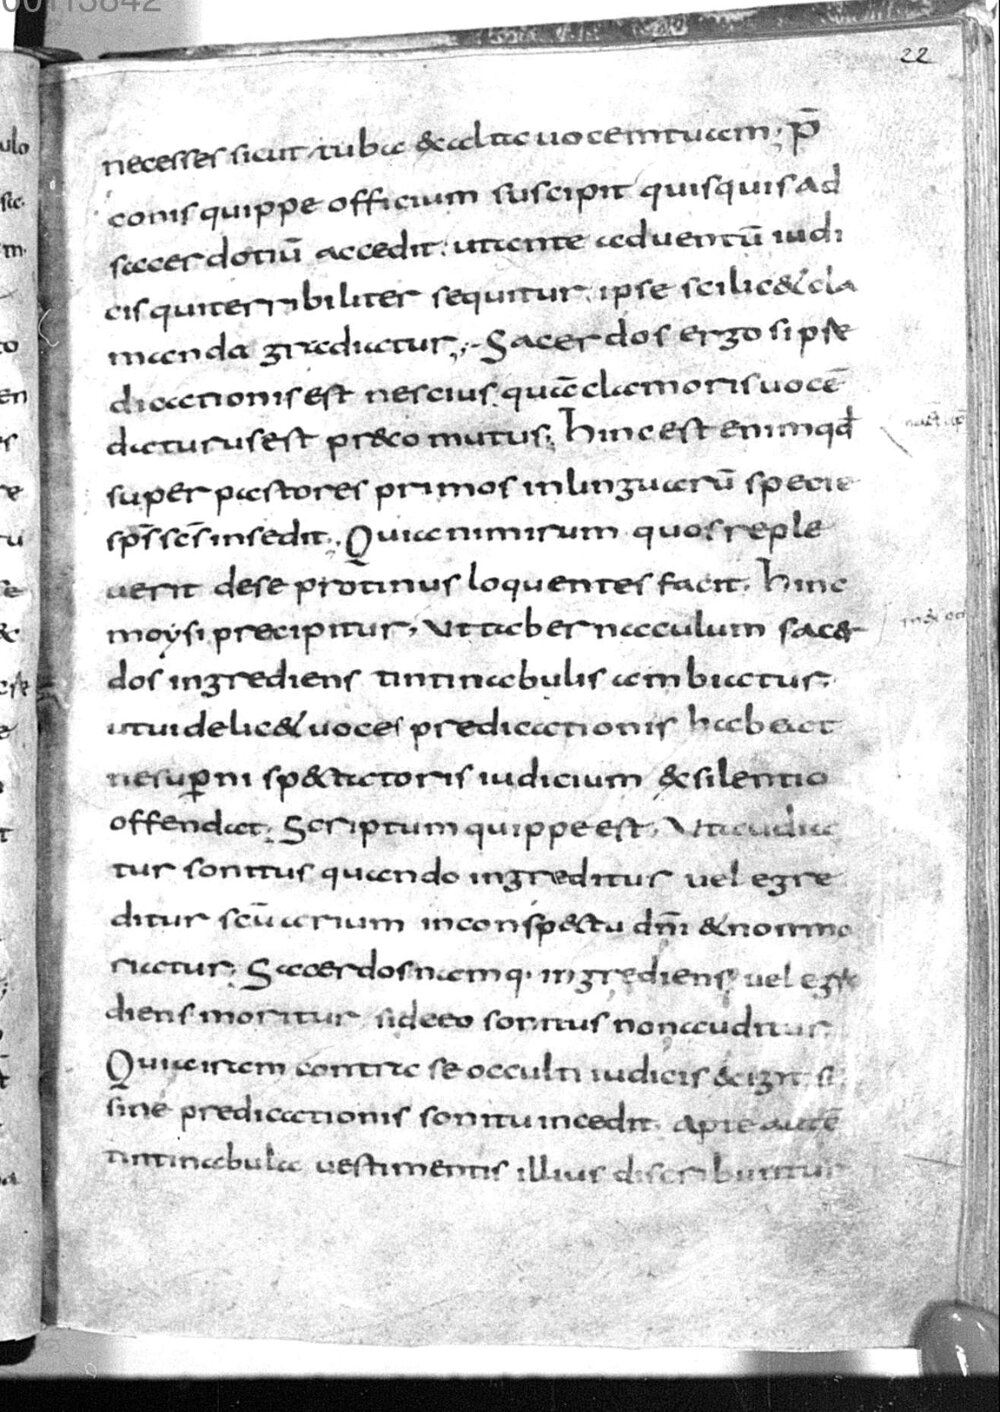 22
necesses sicut tuba & alta uocem tuam; p̄
conis quippe officium suscipit quisquis ad
sacerdotiū accedit. ut ante aduentū iudi
cis qui terribiliter sequitur. ipse scilic& cla
manda gradiatur; Sacerdos ergo si p̄se
dicationis est nescius. quā clamoris uocē
daturus est pr&co mutus; Hinc est enim qd̄
super pastores primos in linguarū specie
sp̄s sc̄s insedit. Quia nimirum quos reple
uerit de se protinus loquentes facit. hinc
moysi precipitur, Ut tabernaculum sacer
dos ingrediens tintinabulis ambiatur.
ut uidelic& uoces predicationis habeat
ne superni sp&tatoris iudicium & silentio
offendat; Scriptum quippe est. Ut audia
tur sonitus quando ingreditur uel egre
ditur sc̄uarium in consp&tu dn̄i & non mo
riatur; Sacerdos namq. ingrediens uel egre
diens moritur si de eo sonitus non auditur.
Quia iram contra se occulti iudicis exigit. si
sine predicationis sonitu incedit. apte autē
tintinabula uestimentis illius discribuntur